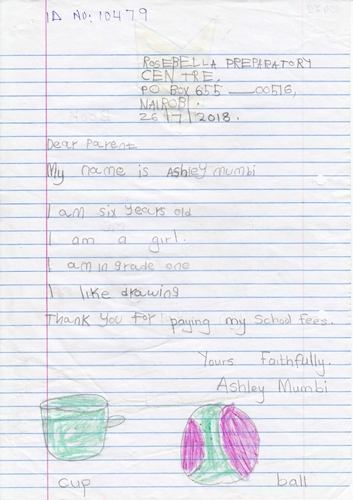 ID NO: 10479
ROSEBELLA PREPARATORY
CENTRE,
PO BOX 655 — 00516,
NAIROBI.
26/7/2018.
Dear Parent
My name is Ashley mumbi
I am six years old
I am a girl.
I am in grade one
I like drawing
Thank you For paying my School fees.
Yours Faithfully.
Ashley Mumbi
cup ball